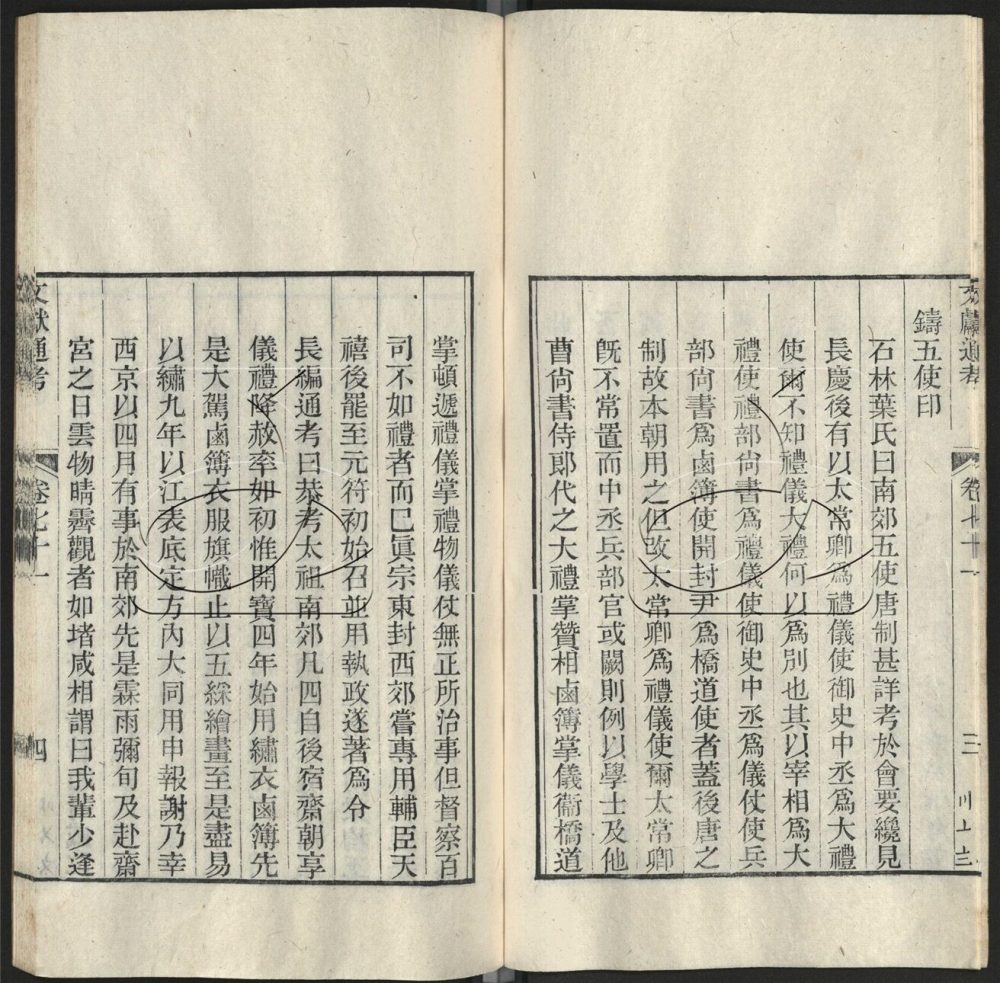 文獻通考 卷七十一 三
鑄五使印
石林葉氏曰南郊五使唐制甚詳考於會要纔見
長慶後有以太常卿爲禮儀使御史中丞爲大禮
使爾不知禮儀大禮何以爲別也其以宰相爲大
禮使禮部尙書爲禮儀使御史中丞爲儀仗使兵
部尙書爲鹵簿使開封尹爲橋道使者蓋後唐之
制故本朝用之但改太常卿爲禮儀使爾太常卿
旣不常置而中丞兵部官或闕則例以學士及他
曹尙書侍郎代之大禮掌贊相鹵簿掌儀衞橋道
掌頓遞禮儀掌禮物儀仗無正所治事但督察百
司不如禮者而巳眞宗東封西郊嘗專用輔臣天
禧後罷至元符初始召並用執政遂著爲令
長編通考曰恭考太祖南郊凡四自後宿齋朝享
儀禮降赦率如初惟開寶四年始用繡衣鹵簿先
是大駕鹵簿衣服旗幟止以五綵繪畫至是盡易
以繡九年以江表底定方內大同用申報謝乃幸
西京以四月有事於南郊先是霖雨彌旬及赴齋
宮之日雲物晴霽觀者如堵咸相謂曰我輩少逢
文獻通考 卷七十一 四